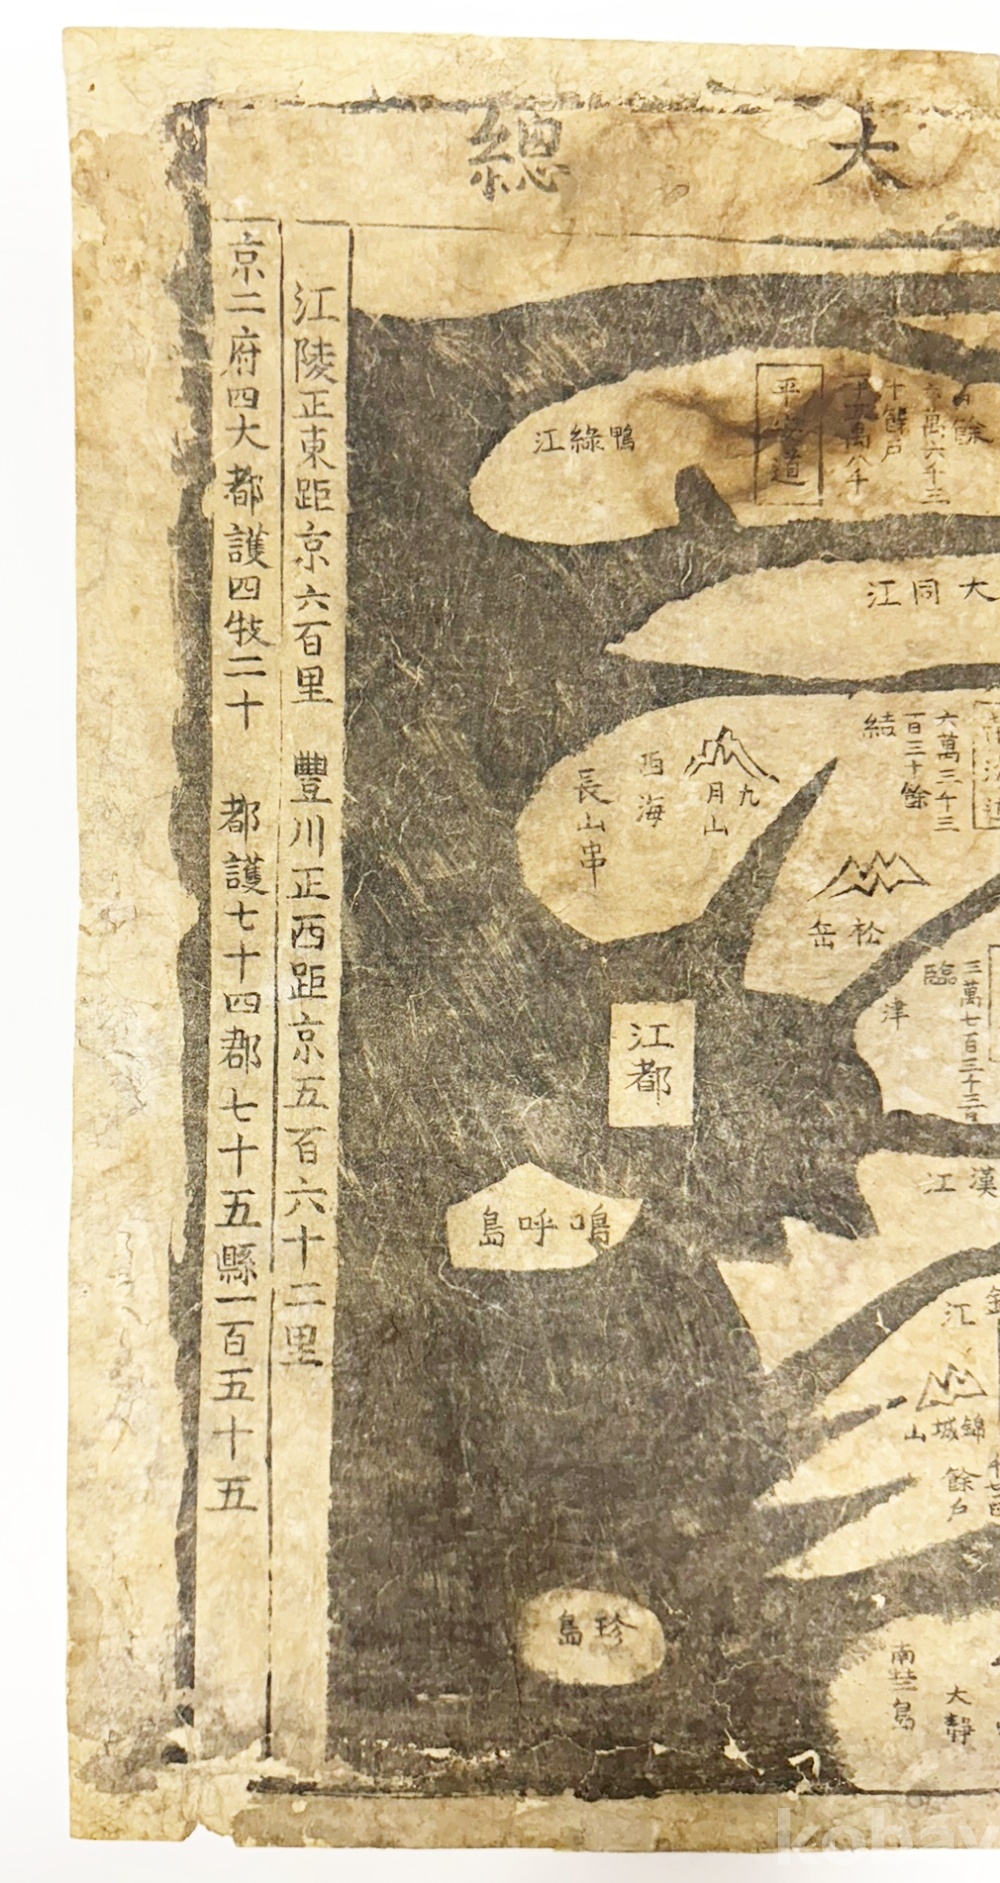 大總
江陵正東距京六百里 豐川正西距京五百六十二里
京二府四大都護四牧二十 都護七十四郡七十五縣一百五十五
平安道
鴨綠江
六萬六千三
十餘戶
大同江
六萬三千三
百三十餘
結
九月山
西海
長山串
松岳
臨津
江都
漢江
嗚呼島
江
錦城山
餘戶
珍島
大靜
kobay